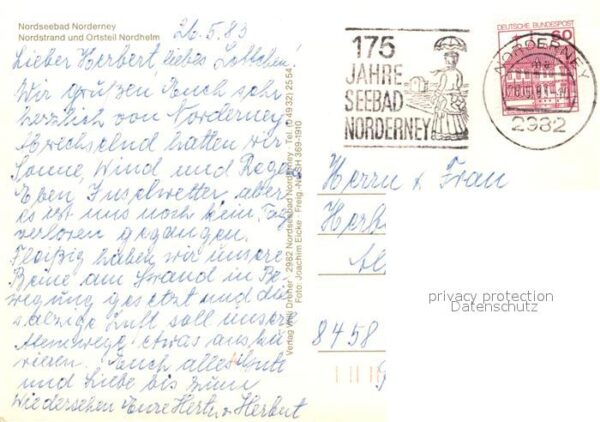 Nordseebad Norderney
Nordstrand und Ortsteil Nordhelm
26.5.83
Lieber Herbert, liebes Lottchen!
Wir grüßen Euch sehr
herzlich von Norderney
Abwechselnd hatten wir
Sonne, Wind und Regen
Eben Inselwetter, aber
es ist uns noch kein Tag
verloren gegangen.
Fleißig haben wir unsere
Beine am Strand in Be-
wegung gesetzt und die
salzige Luft soll unsere
Atemwege etwas aus ku
rieren. Euch alles Gute
und Liebe bis zum
Wiedersehen Eure Herta u. Herbert
Verlag Willi Dreher · 2982 Nordseebad Norderney · Tel. (0 49 32) 25 54
Foto: Joachim Eicke · Freig.-Nr. SH 369-1910
175
JAHRE
SEEBAD
NORDERNEY
DEUTSCHE BUNDESPOST
60
NORDERNEY
2982
Herrn u. Frau
8458
privacy protection
Datenschutz